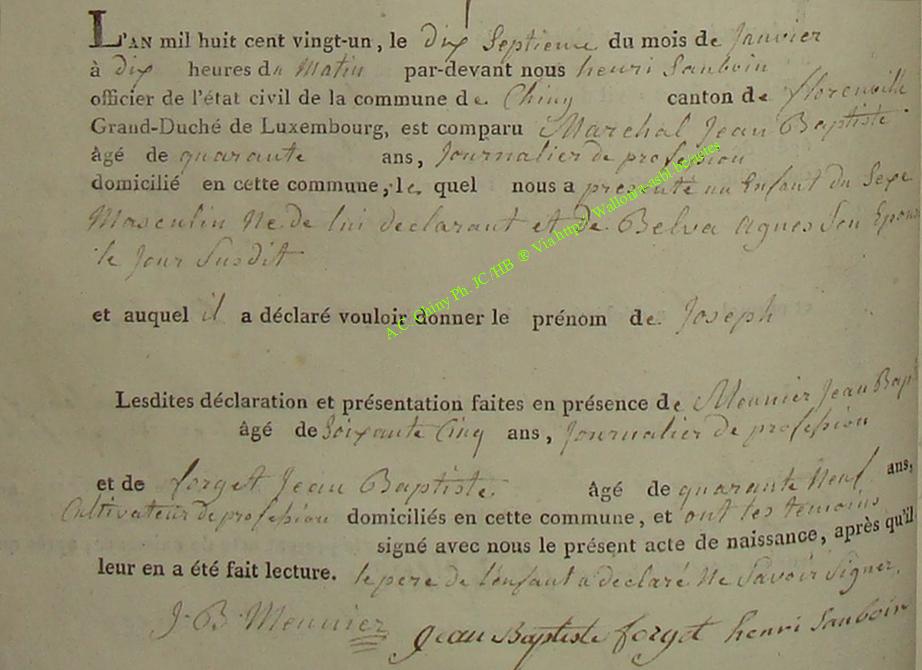 L'AN mil huit cent vingt-un, le dix Septieme du mois de Janvier
à dix heures du Matin par-devant nous henri Sauboin
officier de l'état civil de la commune de Chiny canton de florenville
Grand-Duché de Luxembourg, est comparu Marchal Jean Baptiste
âgé de quarante ans, Journalier de profession
domicilié en cette commune, le quel nous a presenté un Enfant du Sexe
Masculin Né de lui declarant et de Belva Agnes Son Epouse
le Jour Susdit
et auquel il a déclaré vouloir donner le prénom de Joseph
Lesdites déclaration et présentation faites en présence de Meunier Jean Bap
âgé de Soixante Cinq ans, Journalier de profession
et de forget Jean Baptiste âgé de quarante Neuf ans,
Cultivateur de profession domiciliés en cette commune, et ont les temoins
signé avec nous le présent acte de naissance, après qu'il
leur en a été fait lecture. le pere de l'enfant a declaré Ne Savoir Signer.
J. B. Meunier Jean Baptiste forget henri Sauboin
A.C. Chiny Ph. JC /HB ® Via http:/ Wallonia-asbl.be/actes